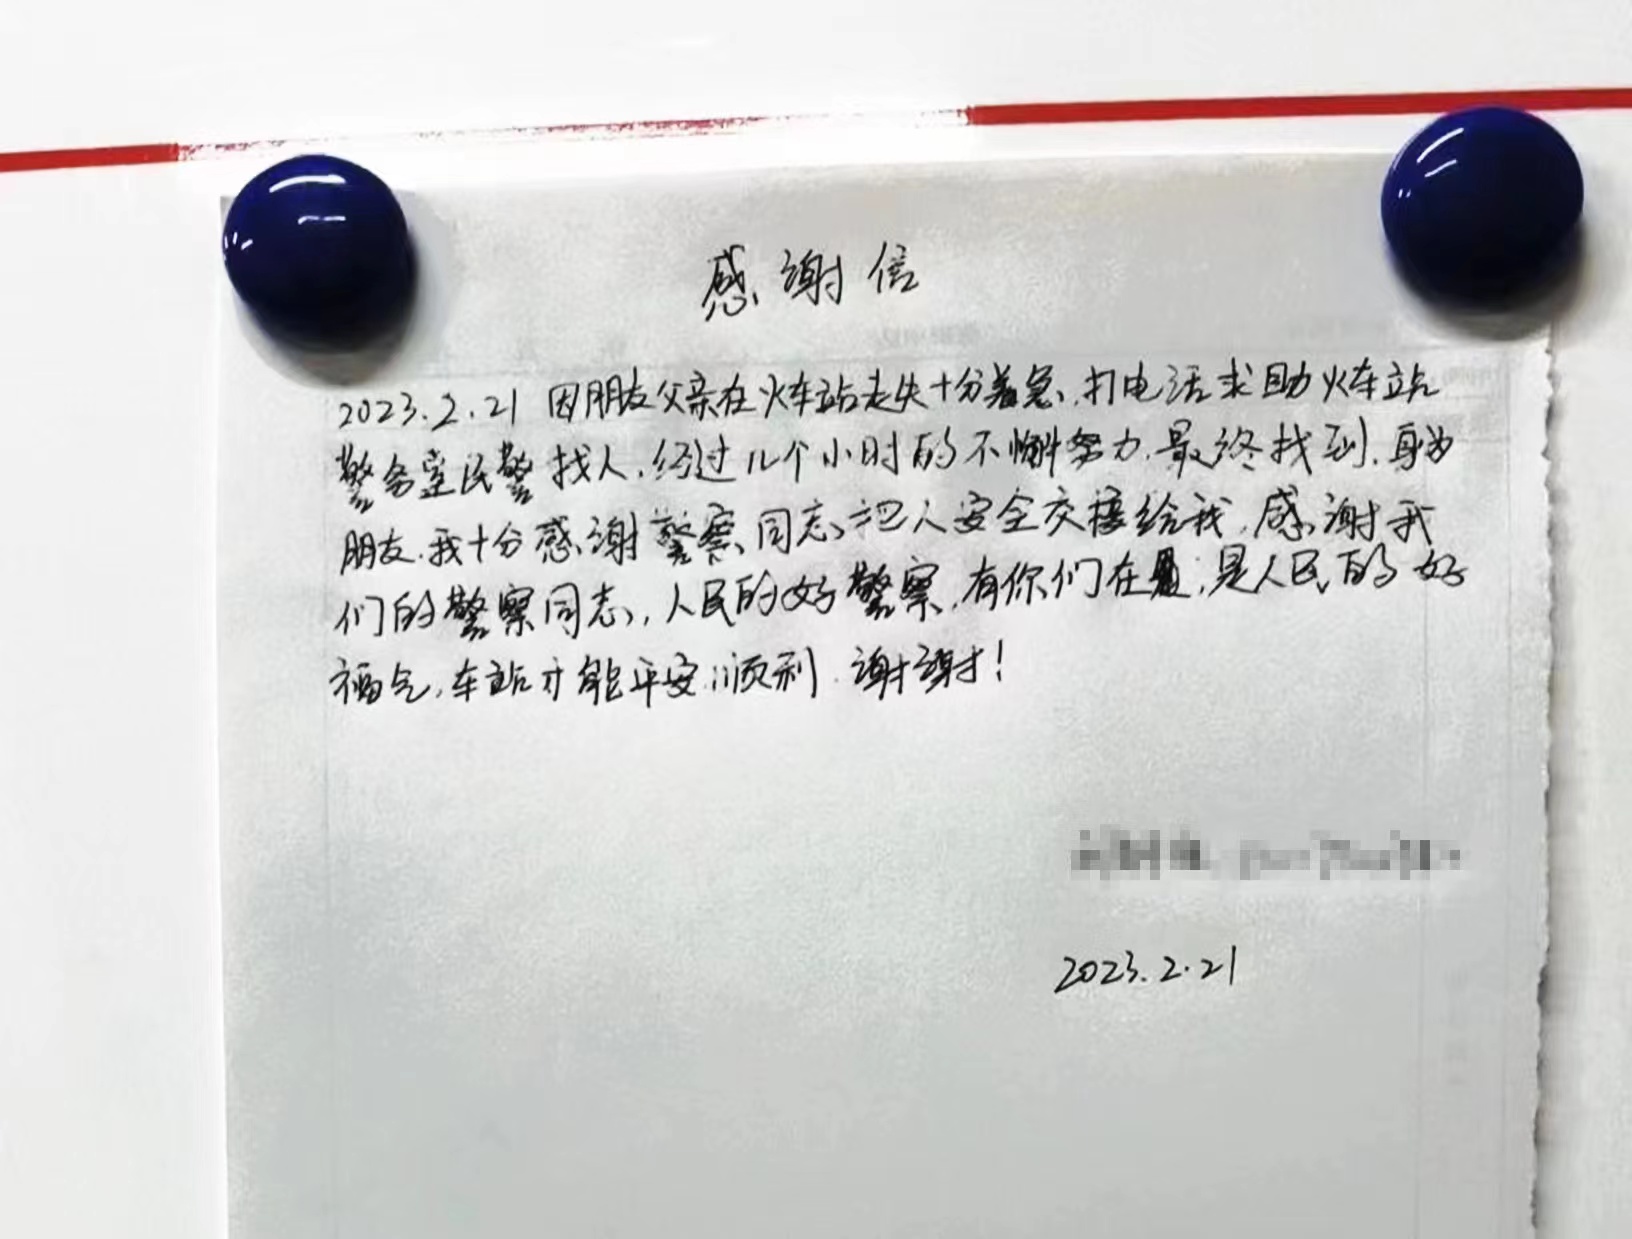 感谢信
2023.2.21 因朋友父亲在火车站走失十分着急,打电话求助火车站
警务室民警找人,经过几个小时的不懈努力,最终找到,身为
朋友,我十分感谢警察同志把人安全交接给我,感谢我
们的警察同志,人民的好警察,有你们在,是人民的好
福气,车站才能平安顺利,谢谢!
2023.2.21